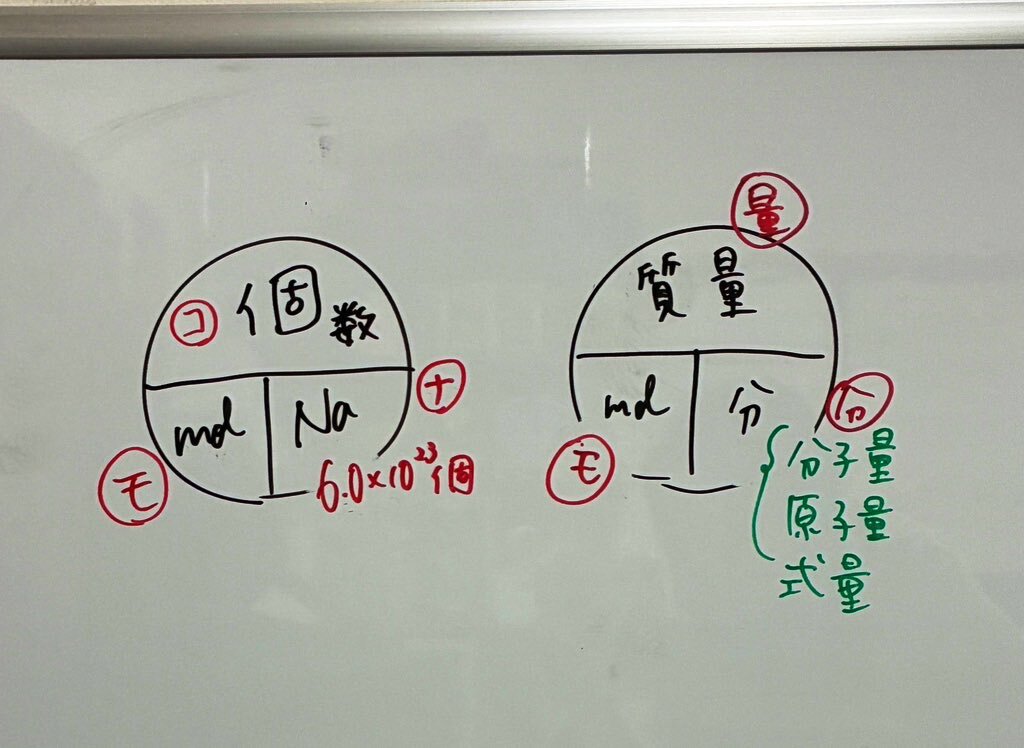 コ 個数
mol Na ナ
モ 6.0×10²³個
量
質量
mol 分 分
モ 分子量
原子量
式量